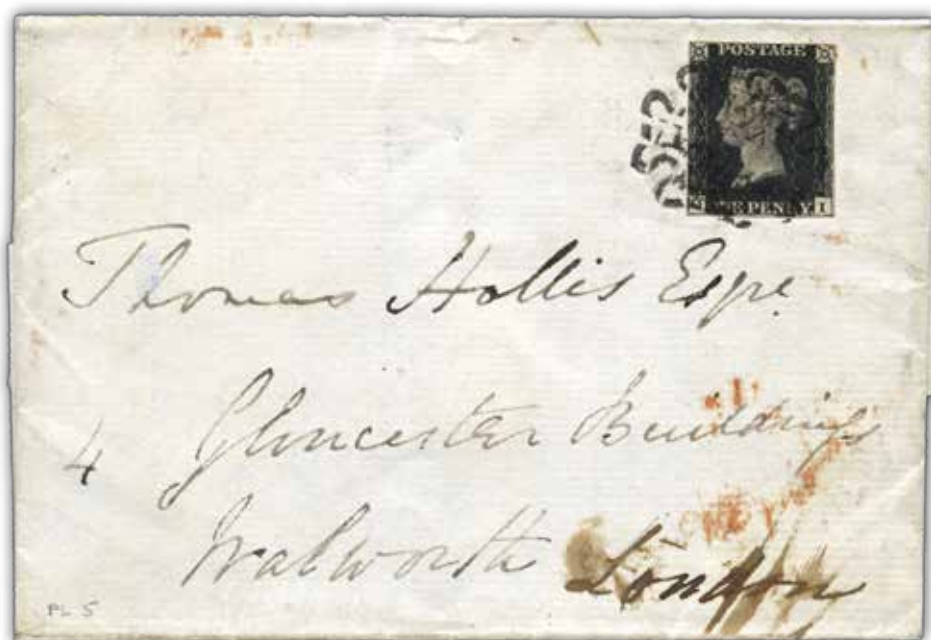 POSTAGE
ONE PENNY I
Thomas Hollis Esqre
4 Gloucester Buildings
Walworth London
PL 5